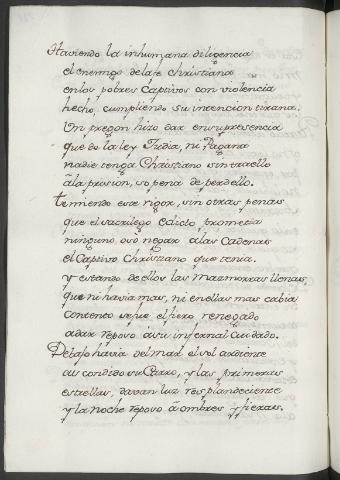 Haviendo la inhumana diligencia
el enemigo dela fe Christiana
enlos pobres Captivos con violencia
hecho, cumpliendo su intencion tirana.
Un pregon hizo dar en su presencia
que do la ley Judia, ni Pagana
nadie tenga Christiano sin traello
â la prision, so pena de perdello.
Temiendo este rigor, sin otras penas
que el sacrilego edicto prometia
ninguno oso negar alas Cadenas
el Captivo Christiano que tenia.
y estando dellos las Mazmorras llenas,
que ni havia mas, ni enellas mas cabia
contento se fue el fiero renegado
a dar reposo â su infernal cuidado.
Debajo havia del mar el sol ardiente
ascondido su Carro, y las primeras
estrellas, davan luz resplandeciente
y la noche reposo â ombres y fieras.